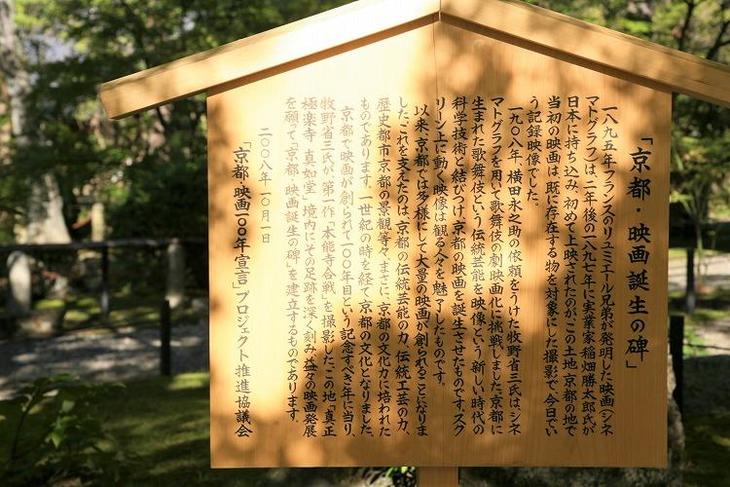 「京都・映画誕生の碑」
一八九五年フランスのリュミエール兄弟が発明した映画(シネ
マトグラフ)は、二年後の一八九七年に実業家稲畑勝太郎氏が
日本に持ち込み、初めて上映されたのが、この土地京都の地で
当初の映画は、既に存在する物を対象にした撮影で、今日でい
う記録映像でした。
一九〇八年、横田永之助の依頼をうけた牧野省三氏は、シネ
マトグラフを用いて歌舞伎の劇映画化に挑戦しました。京都に
生まれた歌舞伎という伝統芸能を映像という新しい時代の
科学技術と結びつけ、京都の映画を誕生させたものです。スク
リーン上に動く映像は観る人々を魅了したものです。
以来、京都では多様にして大量の映画が創られることになりま
した。これを支えたのは、京都の伝統芸能の力、伝統工芸の力、
歴史都市京都の景観等々、まさに、京都の文化力に培われた
ものであります。一世紀の時を経て、京都の文化となりました。
京都で映画が創られて一〇〇年目という記念すべき年に当り、
牧野省三氏が、第一作「本能寺合戦」を撮影した、この地、「真正
極楽寺 真如堂」境内にその足跡を深く刻み、益々の映画発展
を願て「京都・映画誕生の碑」を建立するものであります。
二〇〇八年一〇月一日
「京都・映画一〇〇年宣言」プロジェクト推進協議会